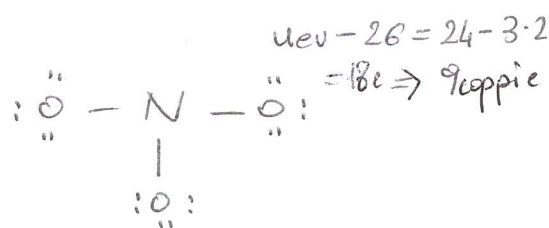 uev - 26 = 24 - 3·2
= 18e ⇒ 9coppie
:O - N - O:
:O: